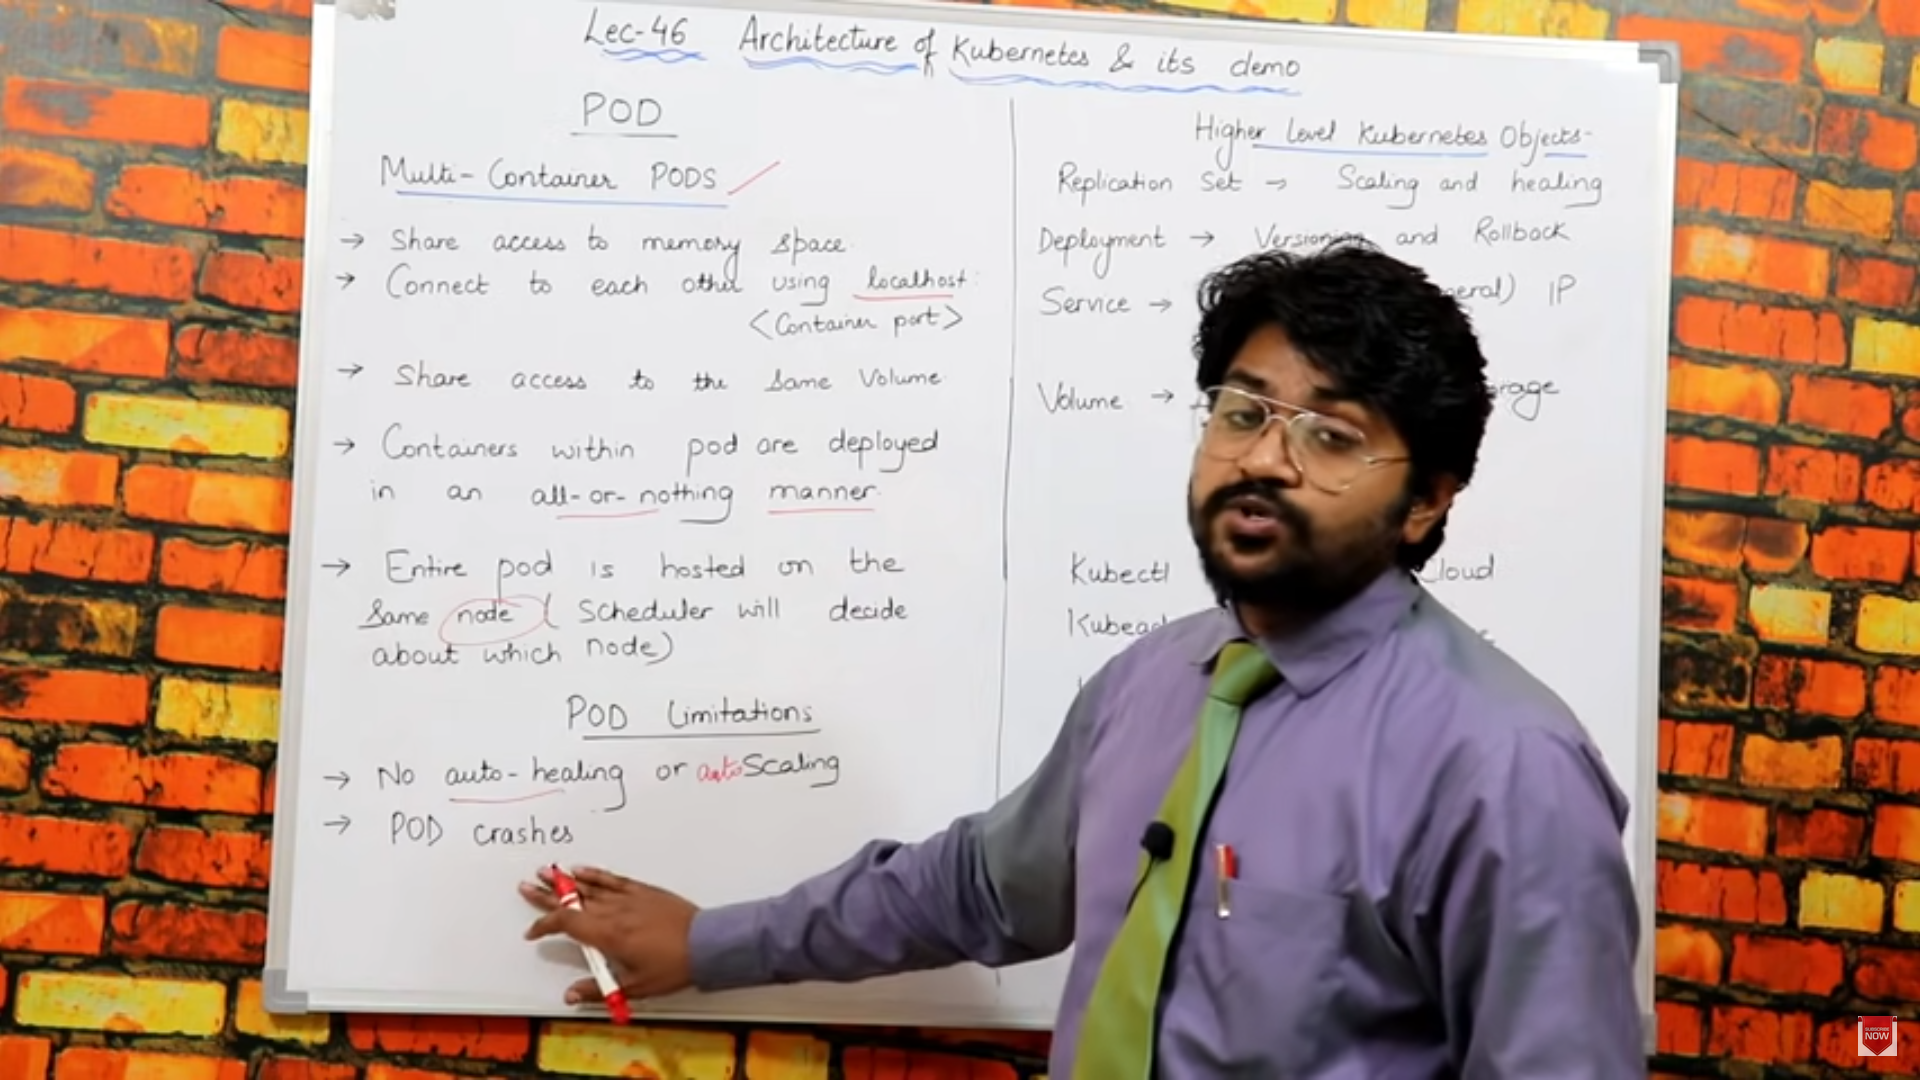 Lec-46 Architecture of Kubernetes & its demo
POD
Multi-Container PODS
→ Share access to memory space.
→ Connect to each other using localhost:
<Container port>
→ Share access to the same Volume.
→ Containers within pod are deployed
in an all-or-nothing manner.
→ Entire pod is hosted on the
same node (Scheduler will decide
about which node)
POD Limitations
→ No auto-healing or auto Scaling
→ POD crashes
Higher Level Kubernetes Objects-
Replication Set → Scaling and healing
Deployment → Versioning and Rollback
Service → IP
Volume →
Kubectl Cloud
SUBSCRIBE
NOW